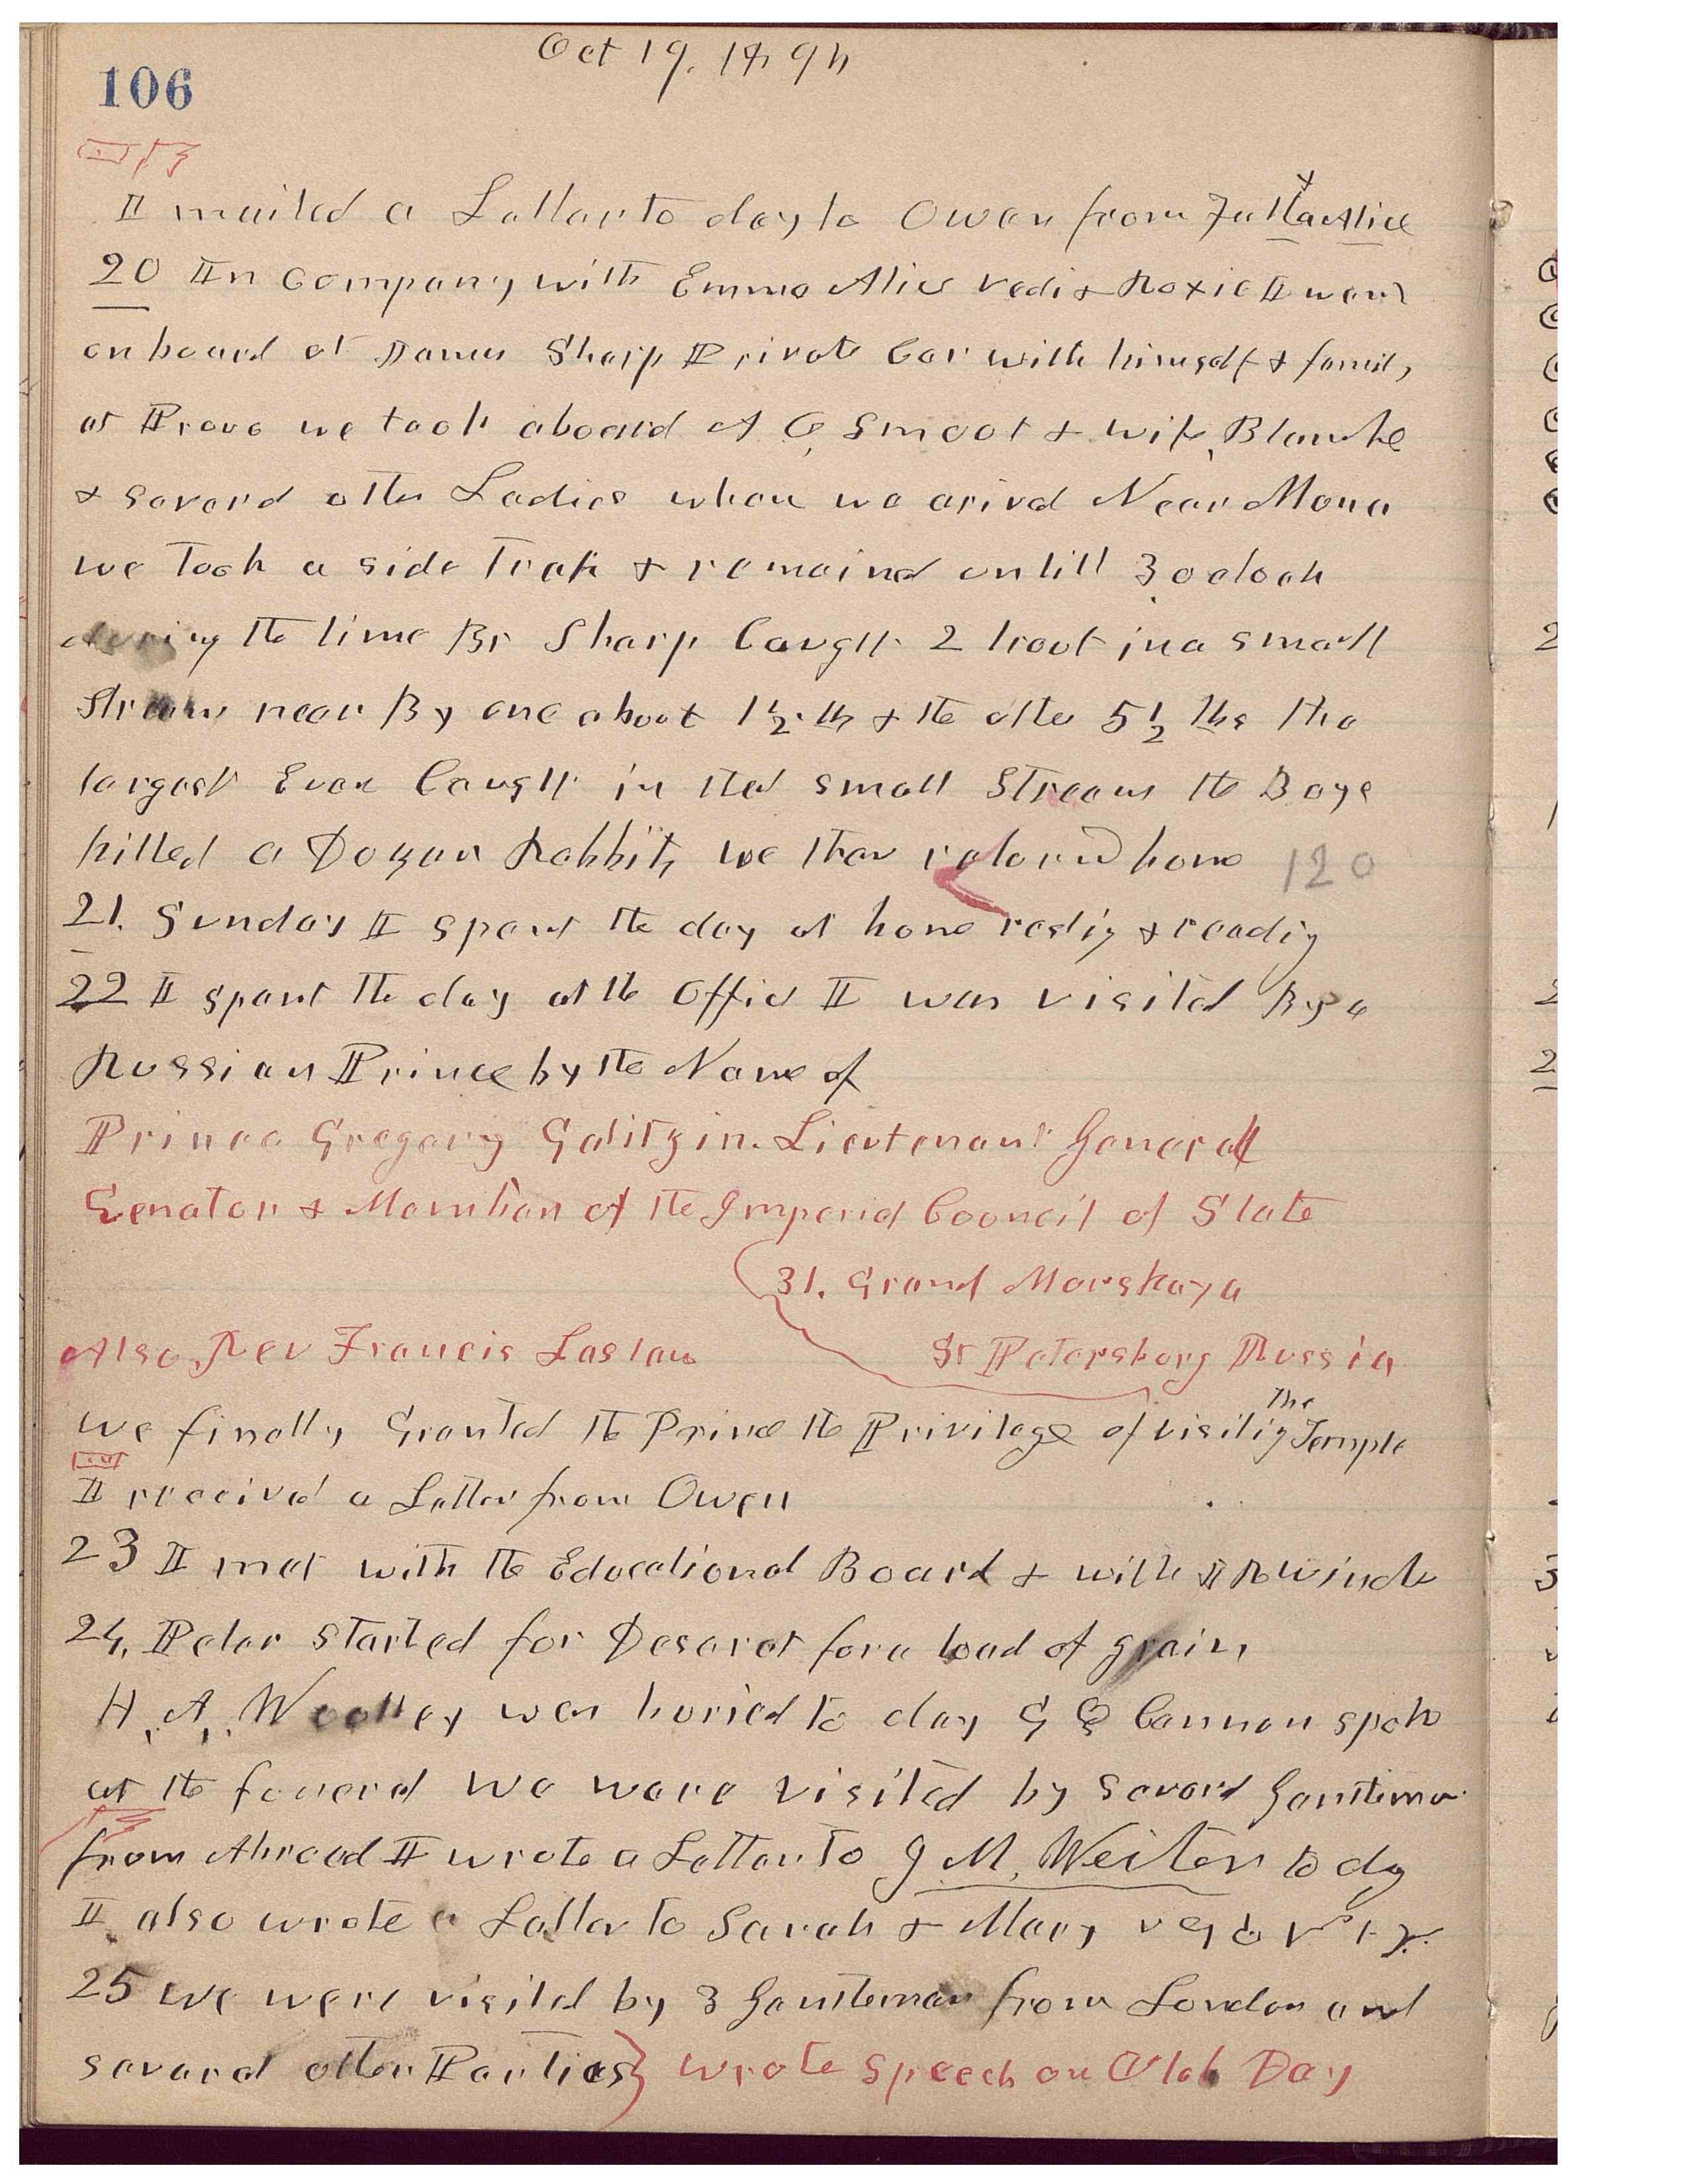 106
Oct 19. 1894
I mailed a Letter to day to Owen from Jutta & Alice
20 In Company with Emma Alice & Roxie I went
on board of James Sharp Private Car with himself & family
at Provo we took aboard A O Smoot & wife, Blanche
& several other Ladies when we arived Near Mona
we took a side Track & remained untill 3 oclock
during the time Br Sharp Caught 2 trout in a small
Stream near By one about 1½ lb & the other 5½ lbs the
largest Ever Caught in that small Stream the Boys
killed a Dozen Rabbits we then returnd home 120
21. Sunday I spent the day at home restig & readig
22 I spent the day at the Office I was visited By a
Russian Prince by the Name of
Prince Gregory Galitzin. Lieutenant General
Senator & Member of the Imperial Council of State
31. Grand Morskaya
Also Rev Francis Laslau St Petersburg Russia
we finally Granted the Prince the Privilege of visitig The Temple
I received a Letter from Owen
23 I met with the Educational Board & with I R Winde
24, Peter started for Deseret for a load of grain
H, A, Woolley was buried to day G Q Cannon spoke
at the funeral we were visited by several Gentlemen
from Abroad I wrote a Letter to J M, Weiten to dy
I also wrote a Letter to Sarah & Mary
25 we were visited by 3 Gentleman from London and
several other Parties} wrote speech on Utah Day